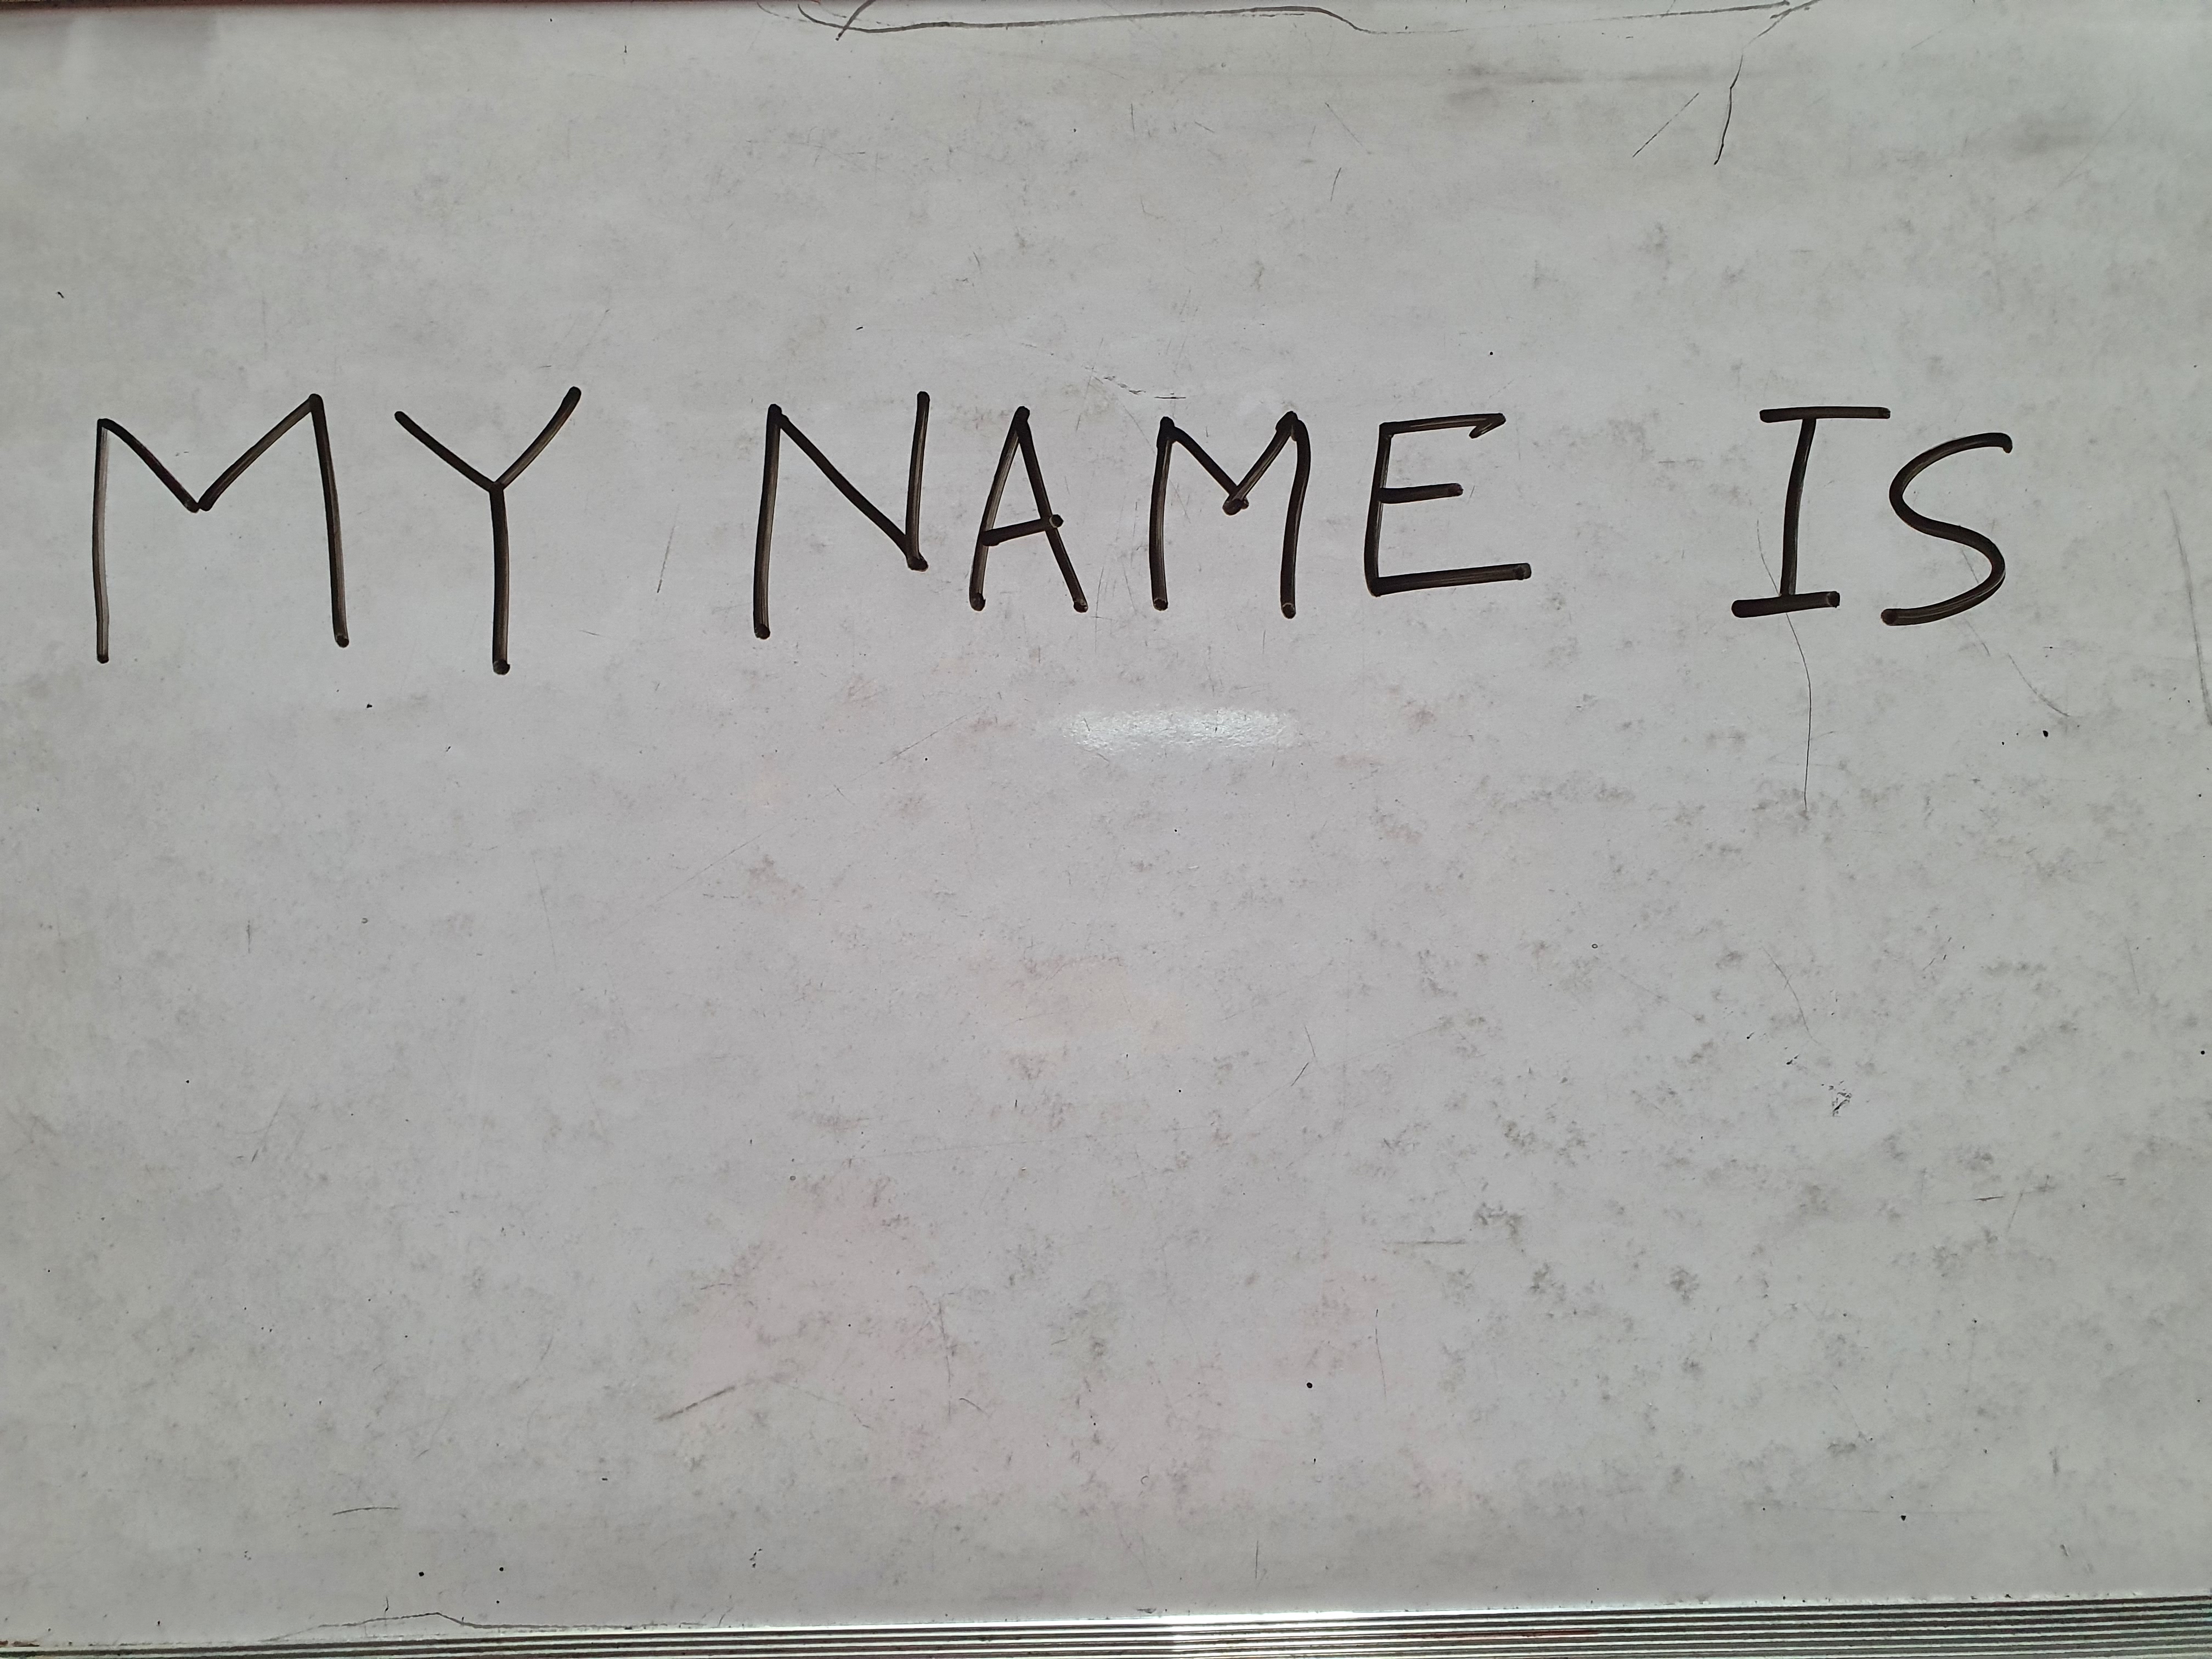 MY NAME IS